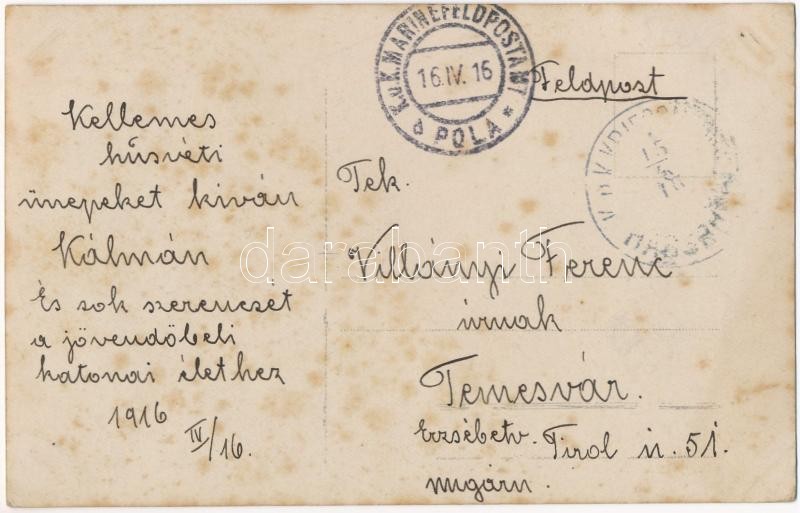 K.u.K. MARINEFELDPOSTAMT
16.IV.16
a POLA *
Feldpost
Kellemes
húsvéti
ünepeket kíván
Kálmán
És sok szerencsét
a jövendőbeli
katonai élethez
1916
IV/16.
Tek.
Villányi Ferenc
úrnak
Temesvár.
Erzsébetv. Tirol u. 51.
Ungarn.
darabanth